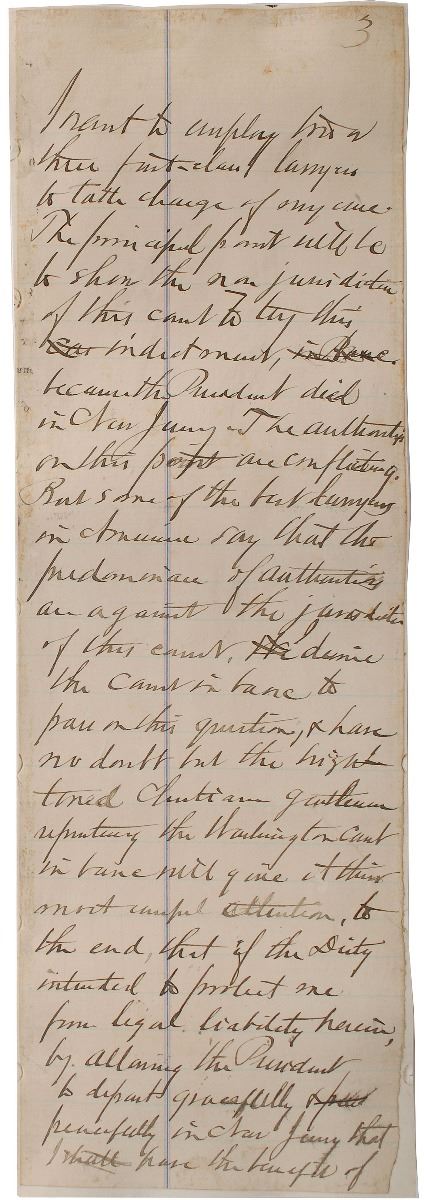 3
I want to employ two or
three first-class lawyers
to take charge of my case.
The principal point will be
to show the non jurisdiction
of this court to try this
indictment, in Banc.
because the President died
in New Jersey. The authorities
on this point are conflicting.
But some of the best lawyers
in America say that the
predominance of authorities
are against the jurisdiction
of this court. I desire
the Court in banc to
pass on this question, & have
no doubt but the high
toned Christian gentlemen
representing the Washington Court
in banc will give it their
most careful attention, to
the end, that if the Deity
intended to protect me
from legal liability herein,
by allowing the President
to depart gracefully &
peacefully in New Jersey that
I shall have the benefit of